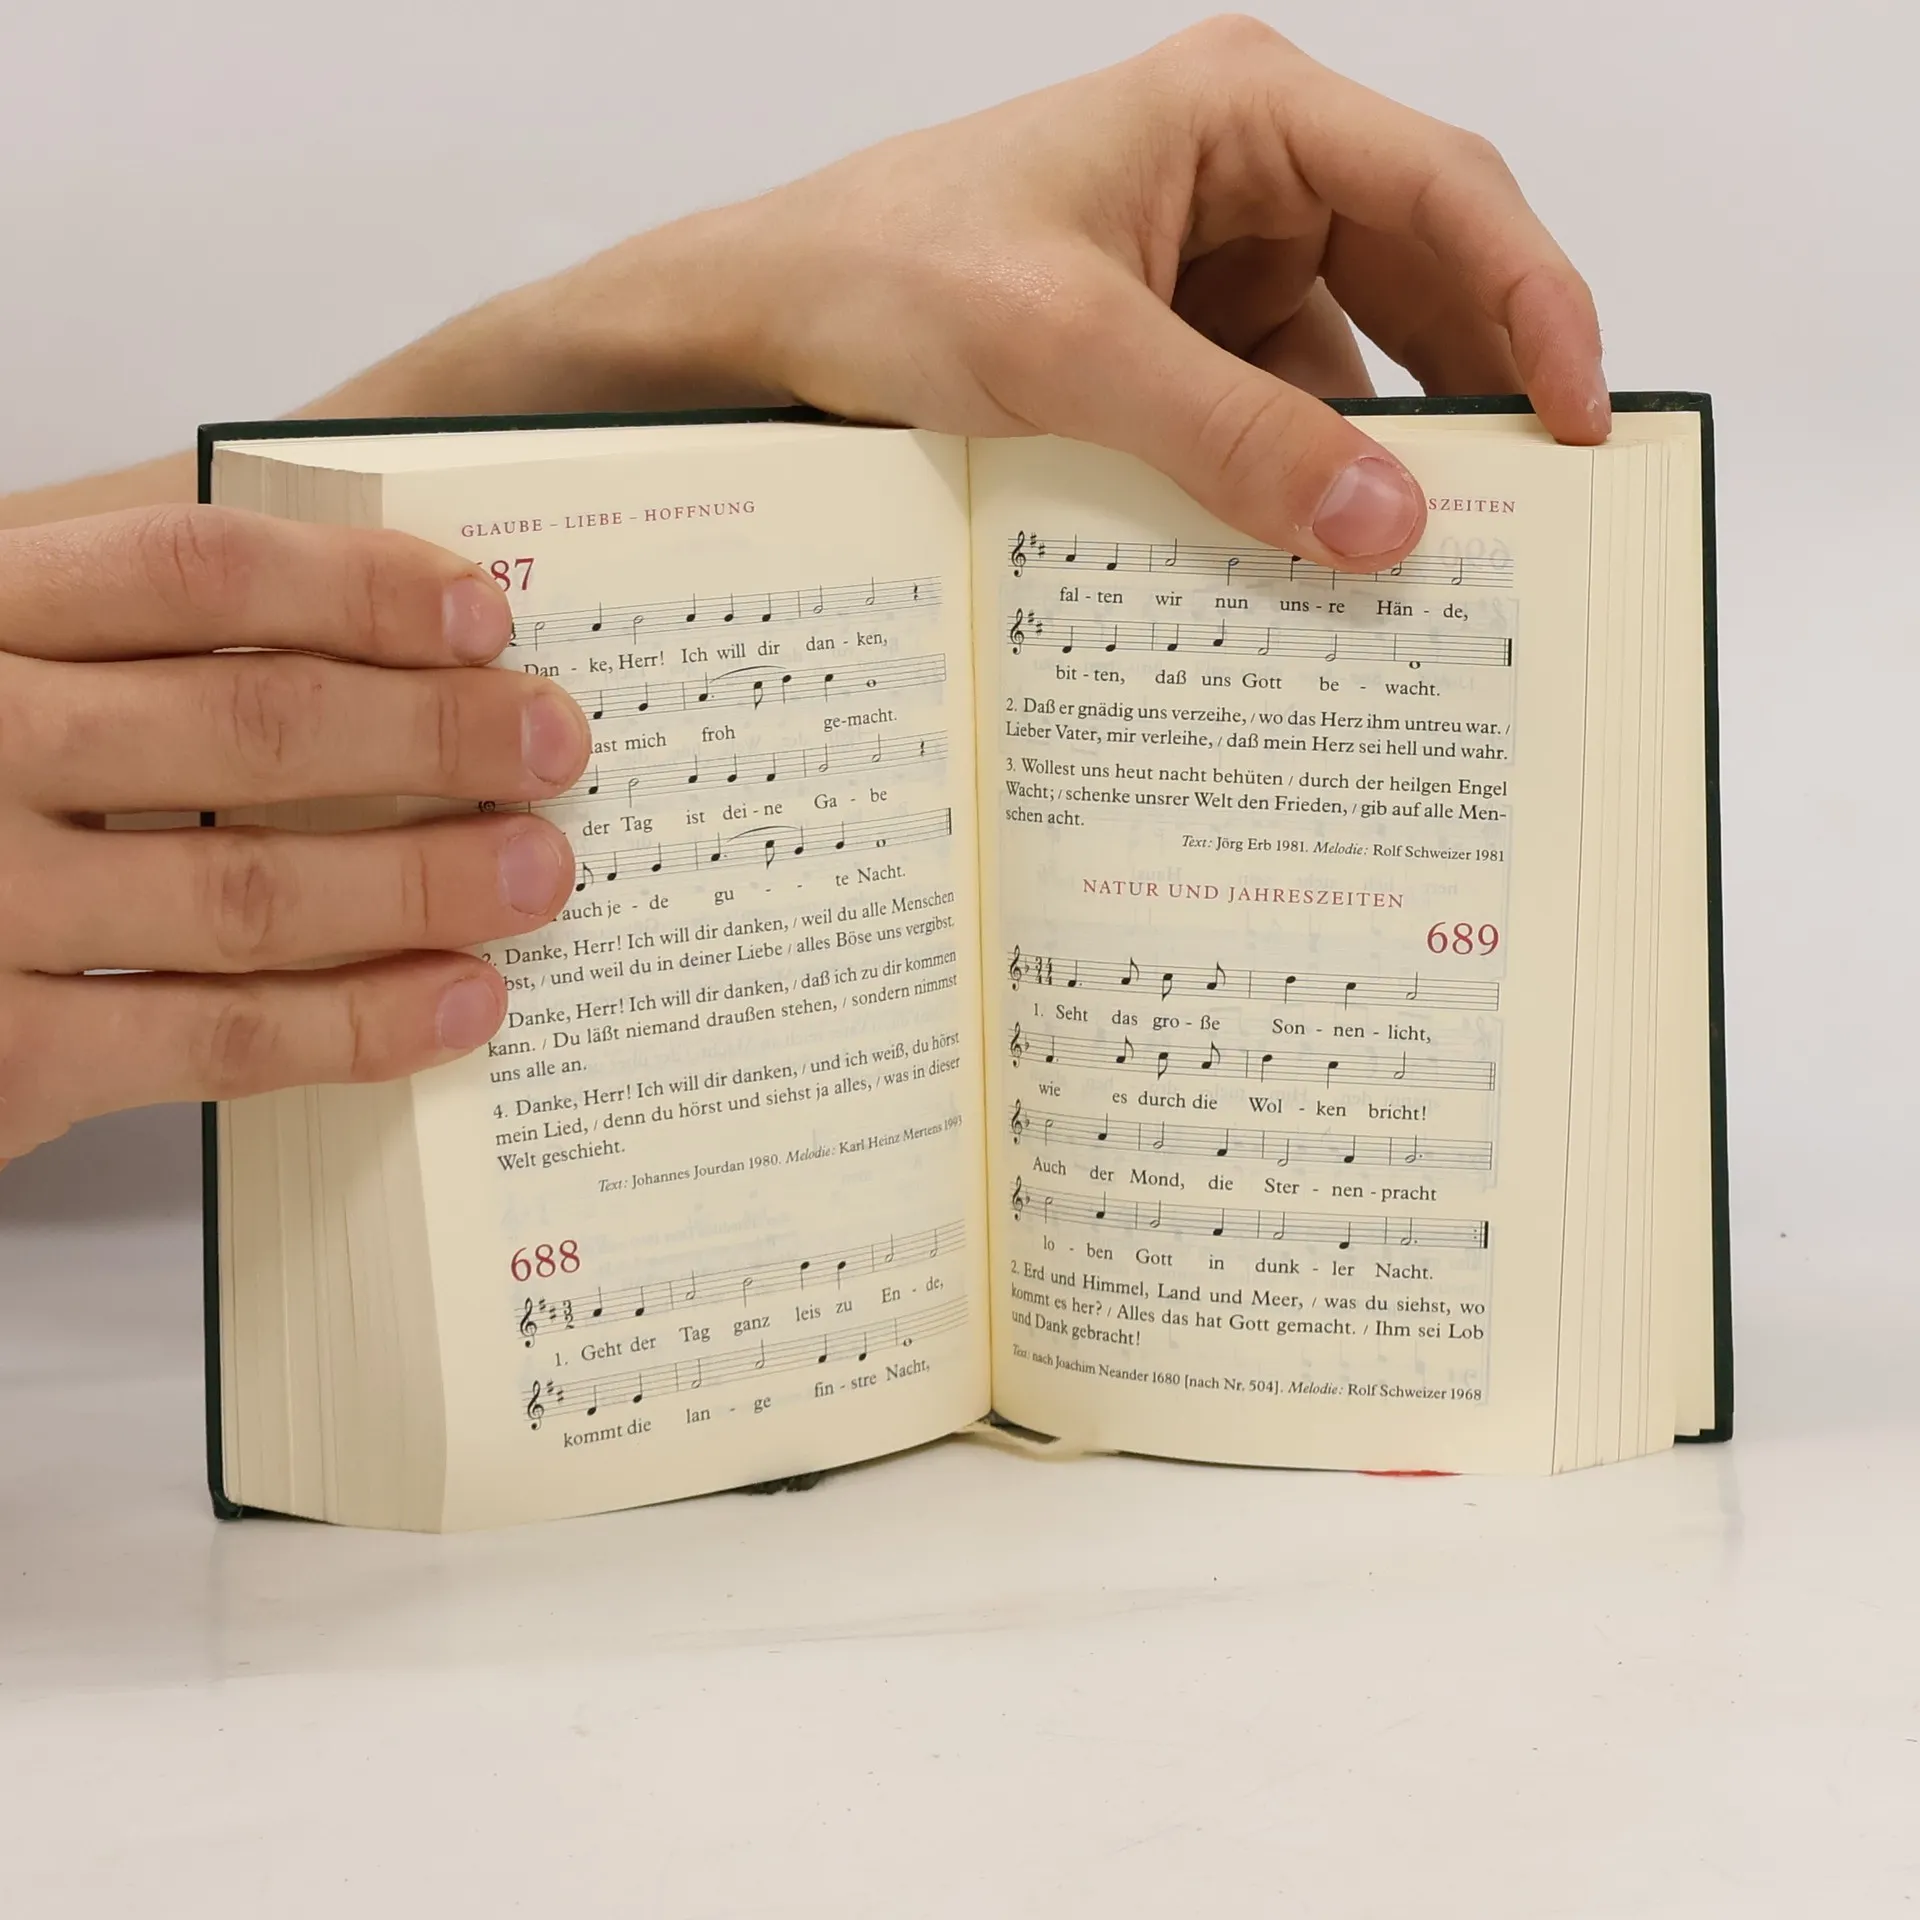 GLAUBE – LIEBE – HOFFNUNG
87
Dan - ke, Herr! Ich will dir dan - ken,
mich froh ge-macht.
der Tag ist dei - ne Ga - be
auch je - de gu - - te Nacht.
2. Danke, Herr! Ich will dir danken, / weil du alle Menschen
bst, / und weil du in deiner Liebe / alles Böse uns vergibst.
Danke, Herr! Ich will dir danken, / daß ich zu dir kommen
kann. / Du läßt niemand draußen stehen, / sondern nimmst
uns alle an.
4. Danke, Herr! Ich will dir danken, / und ich weiß, du hörst
mein Lied, / denn du hörst und siehst ja alles, / was in dieser
Welt geschieht.
Text: Johannes Jourdan 1980. Melodie: Karl Heinz Mertens 1993
688
1. Geht der Tag ganz leis zu En - de,
kommt die lan - ge fin - stre Nacht,
SZEITEN
fal - ten wir nun uns - re Hän - de,
bit - ten, daß uns Gott be - wacht.
2. Daß er gnädig uns verzeihe, / wo das Herz ihm untreu war. /
Lieber Vater, mir verleihe, / daß mein Herz sei hell und wahr.
3. Wollest uns heut nacht behüten / durch der heilgen Engel
Wacht; / schenke unsrer Welt den Frieden, / gib auf alle Men-
schen acht.
Text: Jörg Erb 1981. Melodie: Rolf Schweizer 1981
NATUR UND JAHRESZEITEN
689
1. Seht das gro - ße Son - nen - licht,
wie es durch die Wol - ken bricht!
Auch der Mond, die Ster - nen - pracht
lo - ben Gott in dunk - ler Nacht.
2. Erd und Himmel, Land und Meer, / was du siehst, wo
kommt es her? / Alles das hat Gott gemacht. / Ihm sei Lob
und Dank gebracht!
Text: nach Joachim Neander 1680 [nach Nr. 504]. Melodie: Rolf Schweizer 1968